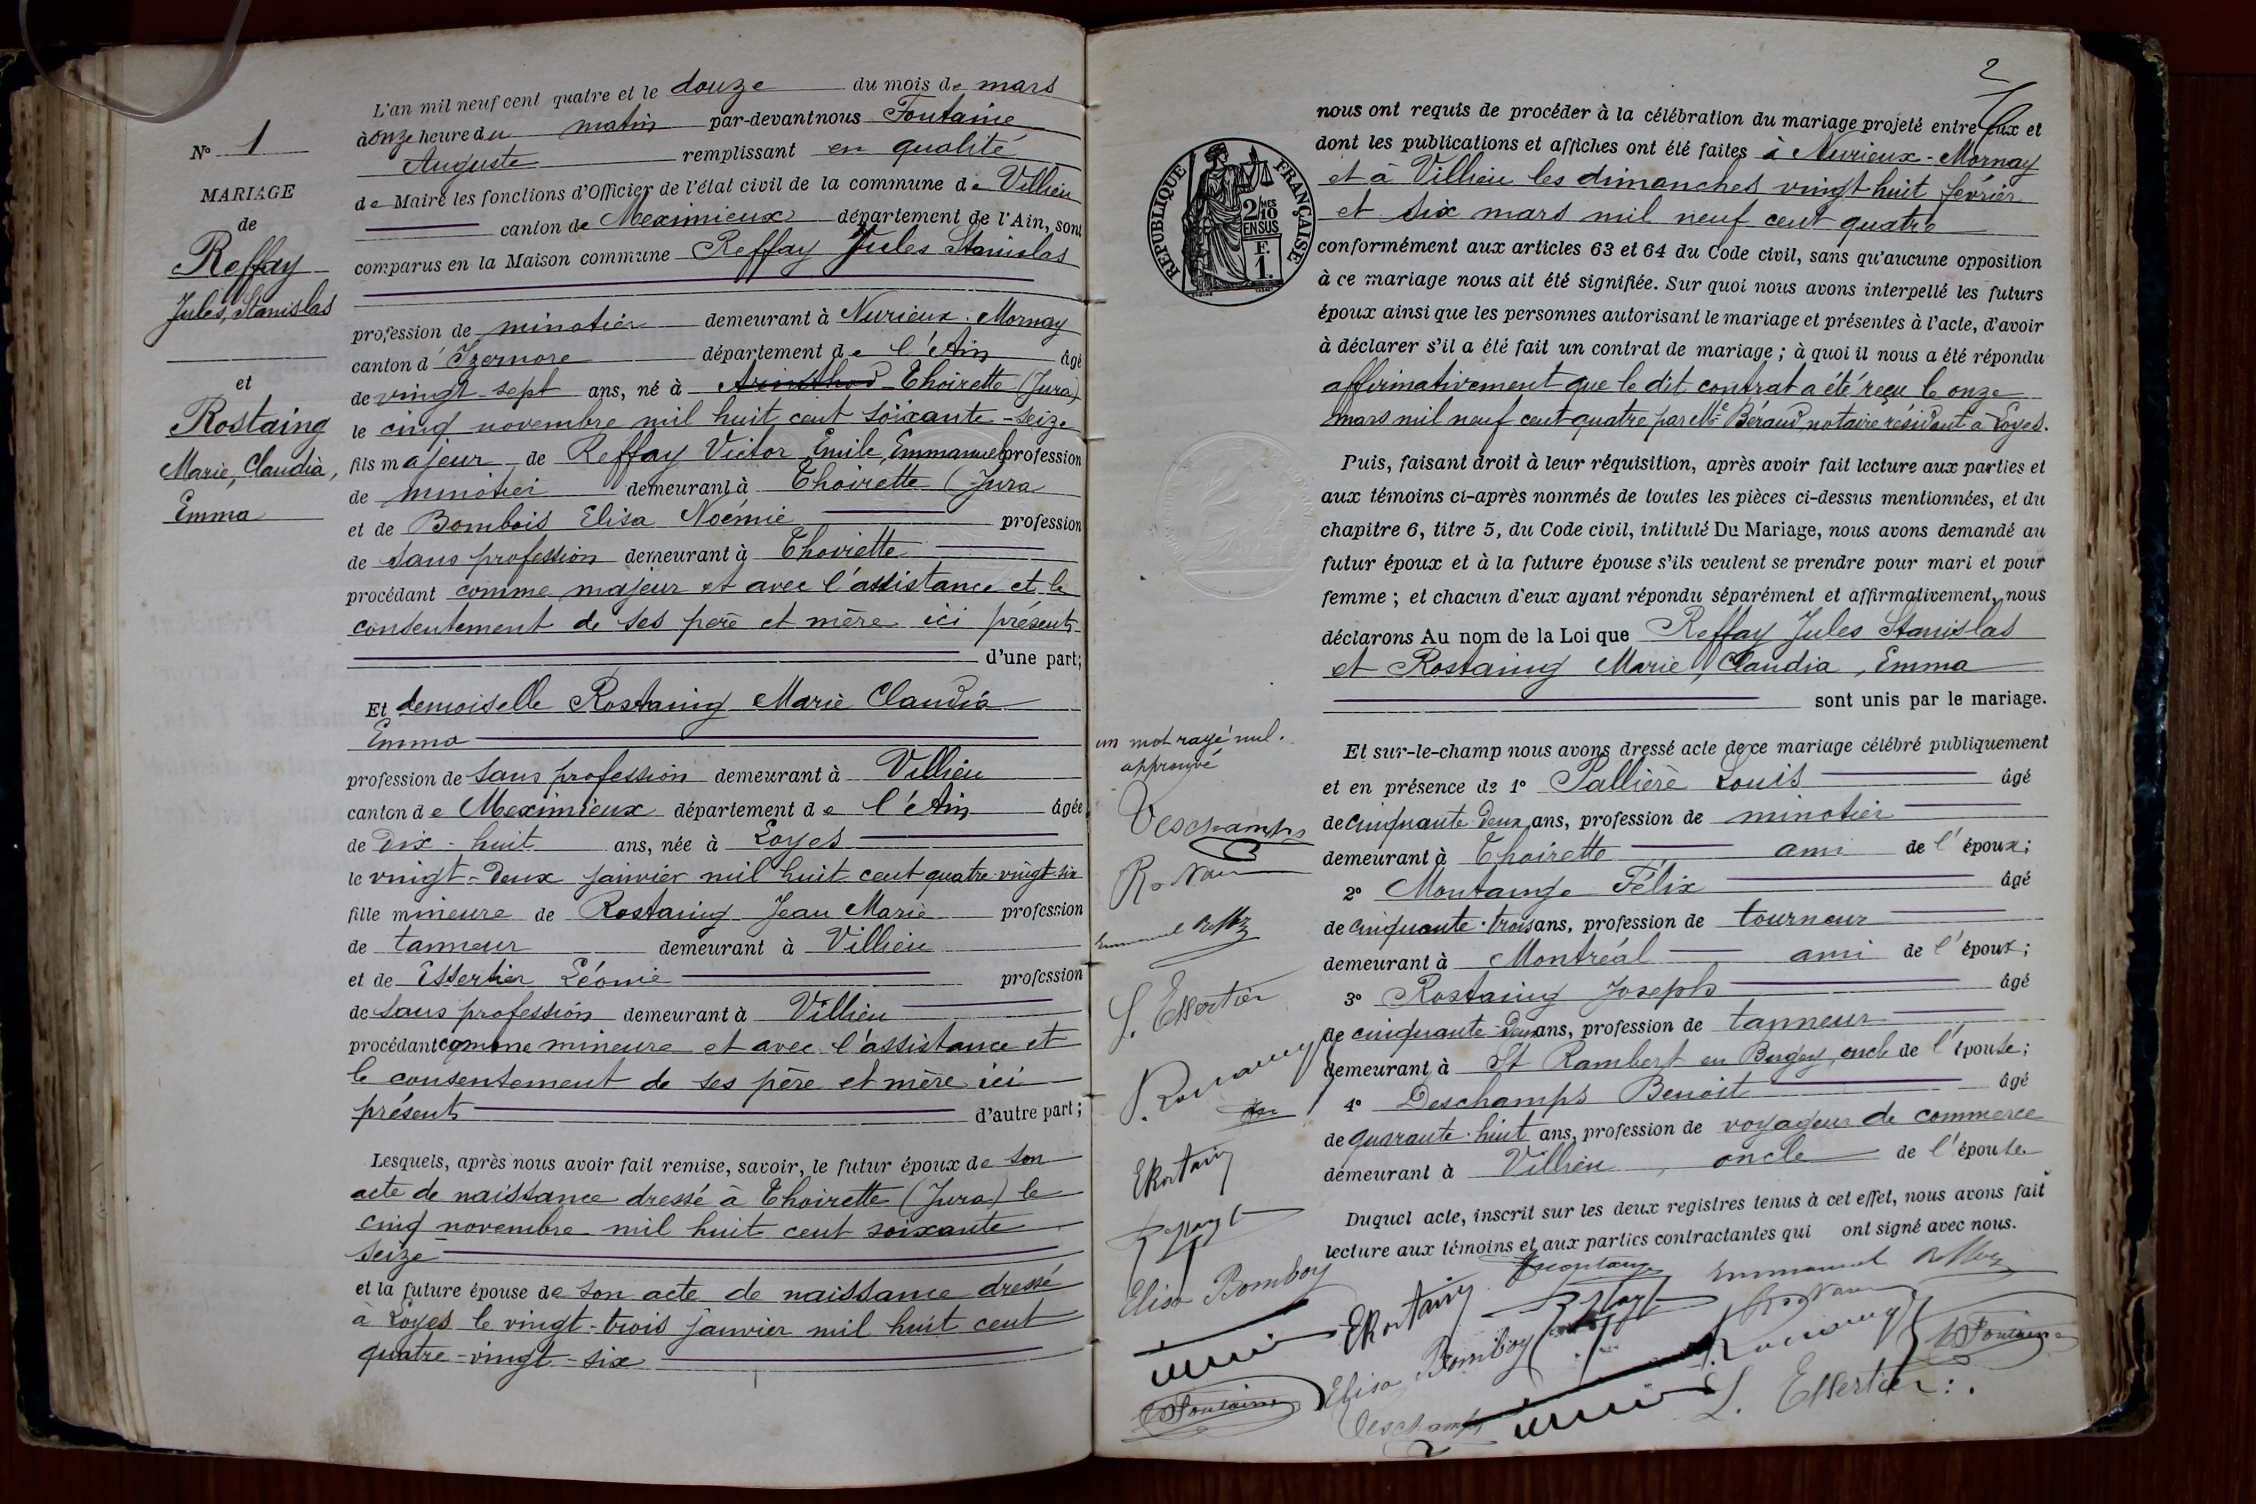 N° 1
MARIAGE
de
Reffay
Jules, Stanislas
et
Rostaing
Marie, Claudia,
Emma
L'an mil neuf cent quatre et le douze du mois de mars
à onze heure du matin par-devant nous Fontaine
Auguste remplissant en qualité
de Maire les fonctions d'Officier de l'état civil de la commune de Villieu
canton de Meximieux département de l'Ain, sont
comparus en la Maison commune Reffay Jules Stanislas
profession de minotier demeurant à Nurieux-Mornay
canton d'Izernore département de l'Ain âgé
de vingt-sept ans, né à Arinthod Thoirette (Jura)
le cinq novembre mil huit cent soixante-seize
fils majeur de Reffay Victor, Emile, Emmanuel profession
de minotier demeurant à Thoirette (Jura
et de Bombois Elisa Noémie profession
de sans profession demeurant à Thoirette
procédant comme majeur et avec l'assistance et le
consentement de ses père et mère ici présents
d'une part;
Et demoiselle Rostaing Marie Claudia
Emma
profession de sans profession demeurant à Villieu
canton de Meximieux département de l'Ain âgée
de Dix-huit ans, née à Loyes
le vingt-deux janvier mil huit cent quatre-vingt-six
fille mineure de Rostaing Jean Marie profession
de tanneur demeurant à Villieu
et de Essertier Léonie profession
de sans profession demeurant à Villieu
procédant comme mineure et avec l'assistance et
le consentement de ses père et mère ici
présents d'autre part;
Lesquels, après nous avoir fait remise, savoir, le futur époux de son
acte de naissance dressé à Thoirette (Jura) le
cinq novembre mil huit cent soixante
seize
et la future épouse de son acte de naissance dressé
à Loyes le vingt-trois janvier mil huit cent
quatre-vingt-six
2
RÉPUBLIQUE FRANÇAISE
2/10MES
EN SUS
F.
1.
nous ont requis de procéder à la célébration du mariage projeté entre eux et
dont les publications et affiches ont été faites à Nurieux-Mornay
et à Villieu les dimanches vingt huit février
et six mars mil neuf cent quatre
conformément aux articles 63 et 64 du Code civil, sans qu'aucune opposition
à ce mariage nous ait été signifiée. Sur quoi nous avons interpellé les futurs
époux ainsi que les personnes autorisant le mariage et présentes à l'acte, d'avoir
à déclarer s'il a été fait un contrat de mariage; à quoi il nous a été répondu
affirmativement que le dit contrat a été reçu le onze
mars mil neuf cent quatre par Me Béraud, notaire résidant à Loyes.
Puis, faisant droit à leur réquisition, après avoir fait lecture aux parties et
aux témoins ci-après nommés de toutes les pièces ci-dessus mentionnées, et du
chapitre 6, titre 5, du Code civil, intitulé Du Mariage, nous avons demandé au
futur époux et à la future épouse s'ils veulent se prendre pour mari et pour
femme; et chacun d'eux ayant répondu séparément et affirmativement, nous
déclarons Au nom de la Loi que Reffay Jules Stanislas
et Rostaing Marie, Claudia, Emma
sont unis par le mariage.
Et sur-le-champ nous avons dressé acte de ce mariage célébré publiquement
et en présence de 1° Pallière Louis âgé
de cinquante-deux ans, profession de minotier
demeurant à Thoirette ami de l'époux;
2° Montange Félix âgé
de cinquante-trois ans, profession de tourneur
demeurant à Montréal ami de l'époux;
3° Rostaing Joseph âgé
de cinquante-deux ans, profession de tanneur
demeurant à St Rambert en Bugey, oncle de l'épouse;
4° Deschamps Benoit âgé
de quarante-huit ans, profession de voyageur de commerce
demeurant à Villieu, oncle de l'épouse
Duquel acte, inscrit sur les deux registres tenus à cet effet, nous avons fait
lecture aux témoins et aux parties contractantes qui ont signé avec nous.
un mot rayé nul.
approuvé
Deschamps
Emmanuel Reffay
L. Essertier
ERostaing
Elisa Bomboy
Fontaine
Montange
Emmanuel Reffay
ERostaing
Elisa Bomboy
Fontaine
Deschamps
L. Essertier